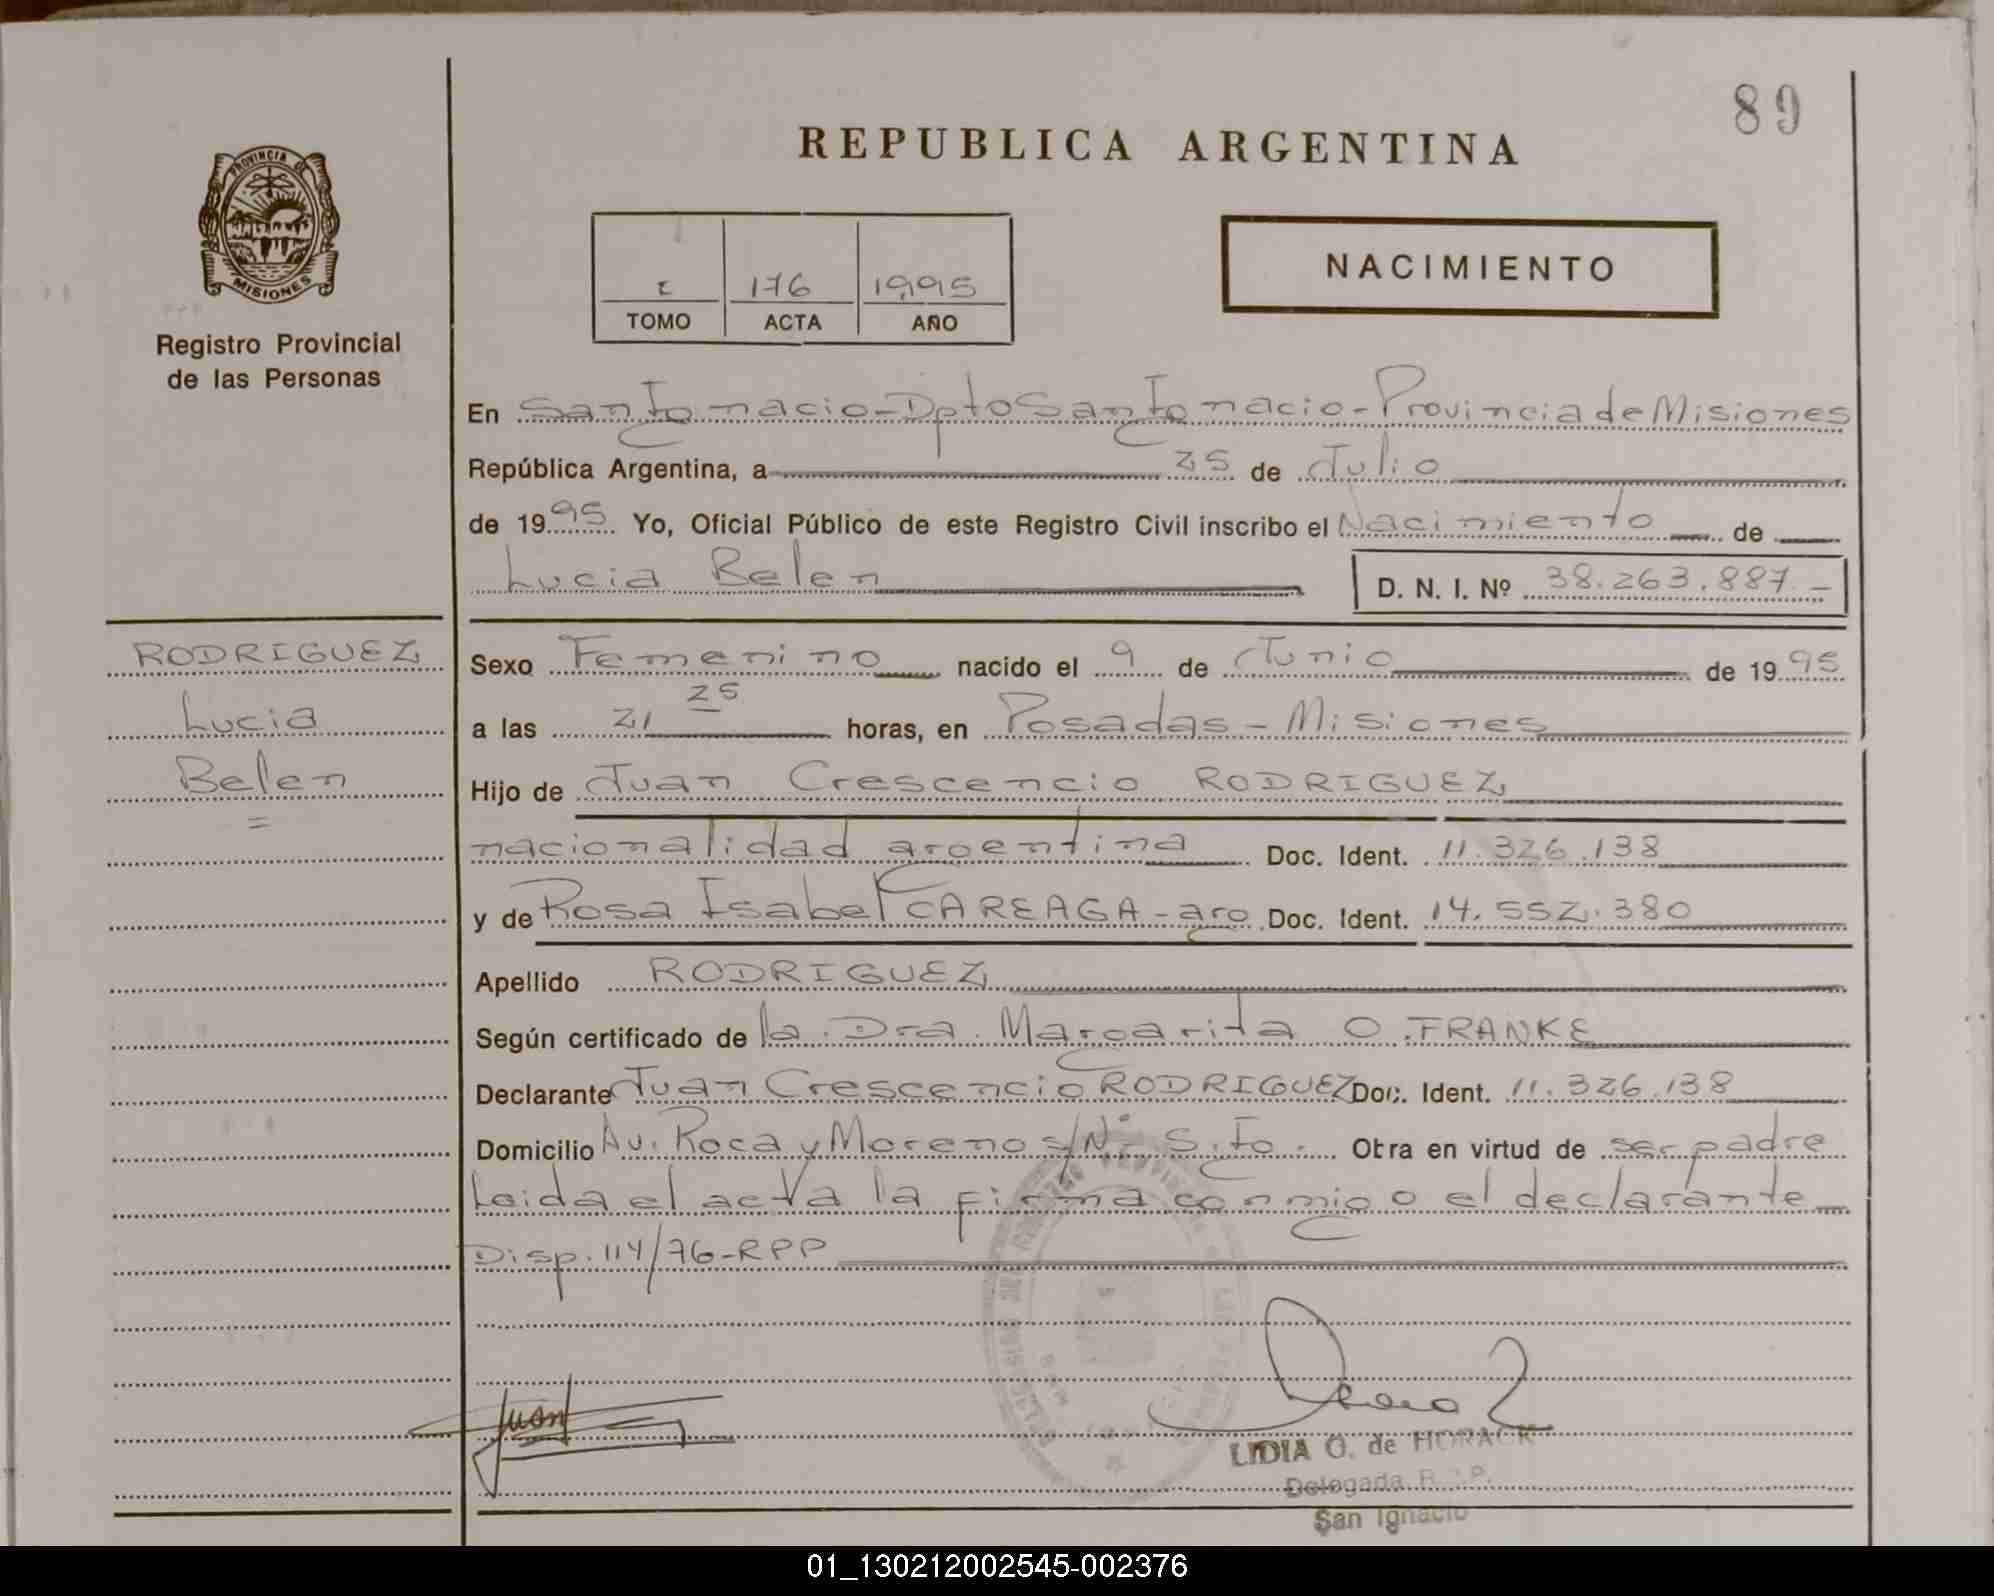 89
REPUBLICA ARGENTINA
PROVINCIA DE
MISIONES
Registro Provincial
de las Personas
I 176 1995
TOMO ACTA AÑO
NACIMIENTO
En San Ignacio - Dpto San Ignacio - Provincia de Misiones
República Argentina, a 25 de Julio
de 1995 Yo, Oficial Público de este Registro Civil inscribo el Nacimiento de
Lucia Belen D. N. I. Nº 38.263.887.-
RODRIGUEZ
Lucia
Belen
=
Sexo Femenino nacido el 9 de Junio de 1995
a las 21 25 horas, en Posadas - Misiones
Hijo de Juan Crescencio RODRIGUEZ
nacionalidad argentina Doc. Ident. 11.326.138
y de Rosa Isabel CAREAGA - arg Doc. Ident. 14.552.380
Apellido RODRIGUEZ
Según certificado de la Dra. Margarita O. FRANKE
Declarante Juan Crescencio RODRIGUEZ Doc. Ident. 11.326.138
Domicilio Av. Roca y Moreno s/Nº S. Ig. Obra en virtud de ser padre
Leida el acta la firma conmigo el declarante
Disp. 114/76-RPP
Juan
LIDIA O. de HORACK
Delegada R.P.P.
San Ignacio
01_130212002545-002376